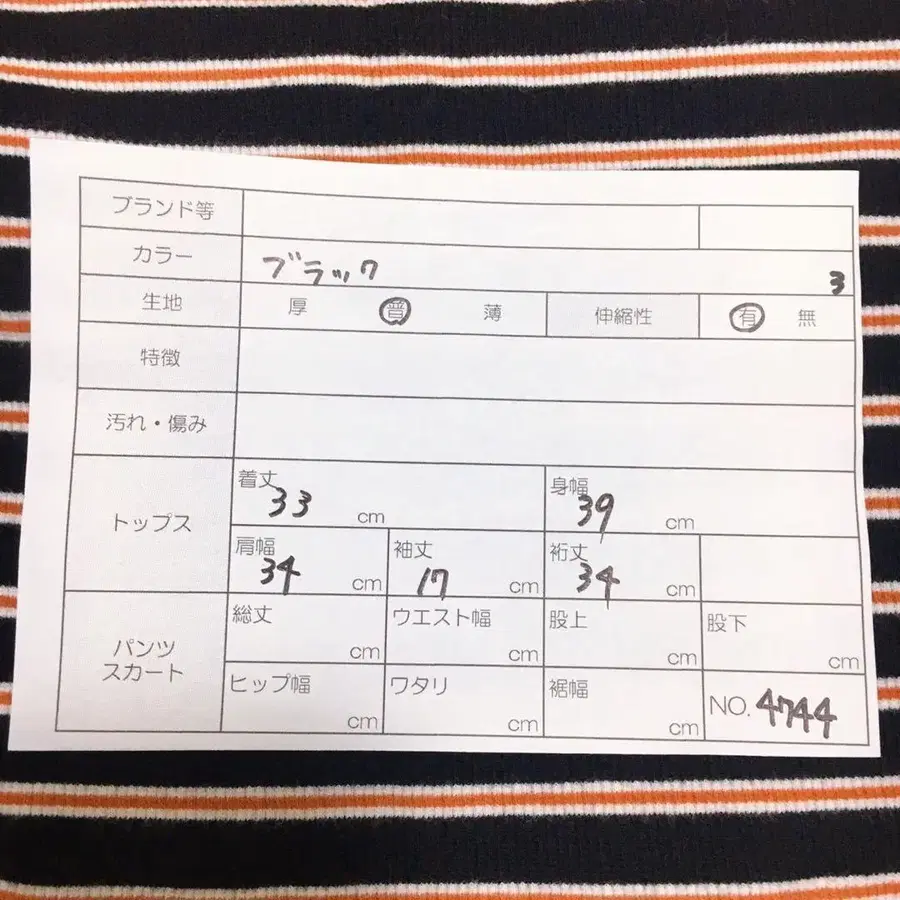 ブランド等
カラー ブラック 3
生地 厚 普 薄 伸縮性 有 無
特徴
汚れ・傷み
トップス
着丈 33 cm 身幅 39 cm
肩幅 34 cm 袖丈 17 cm 裄丈 34 cm
パンツ
スカート
総丈 cm ウエスト幅 cm 股上 cm 股下 cm
ヒップ幅 cm ワタリ cm 裾幅 cm NO. 4744